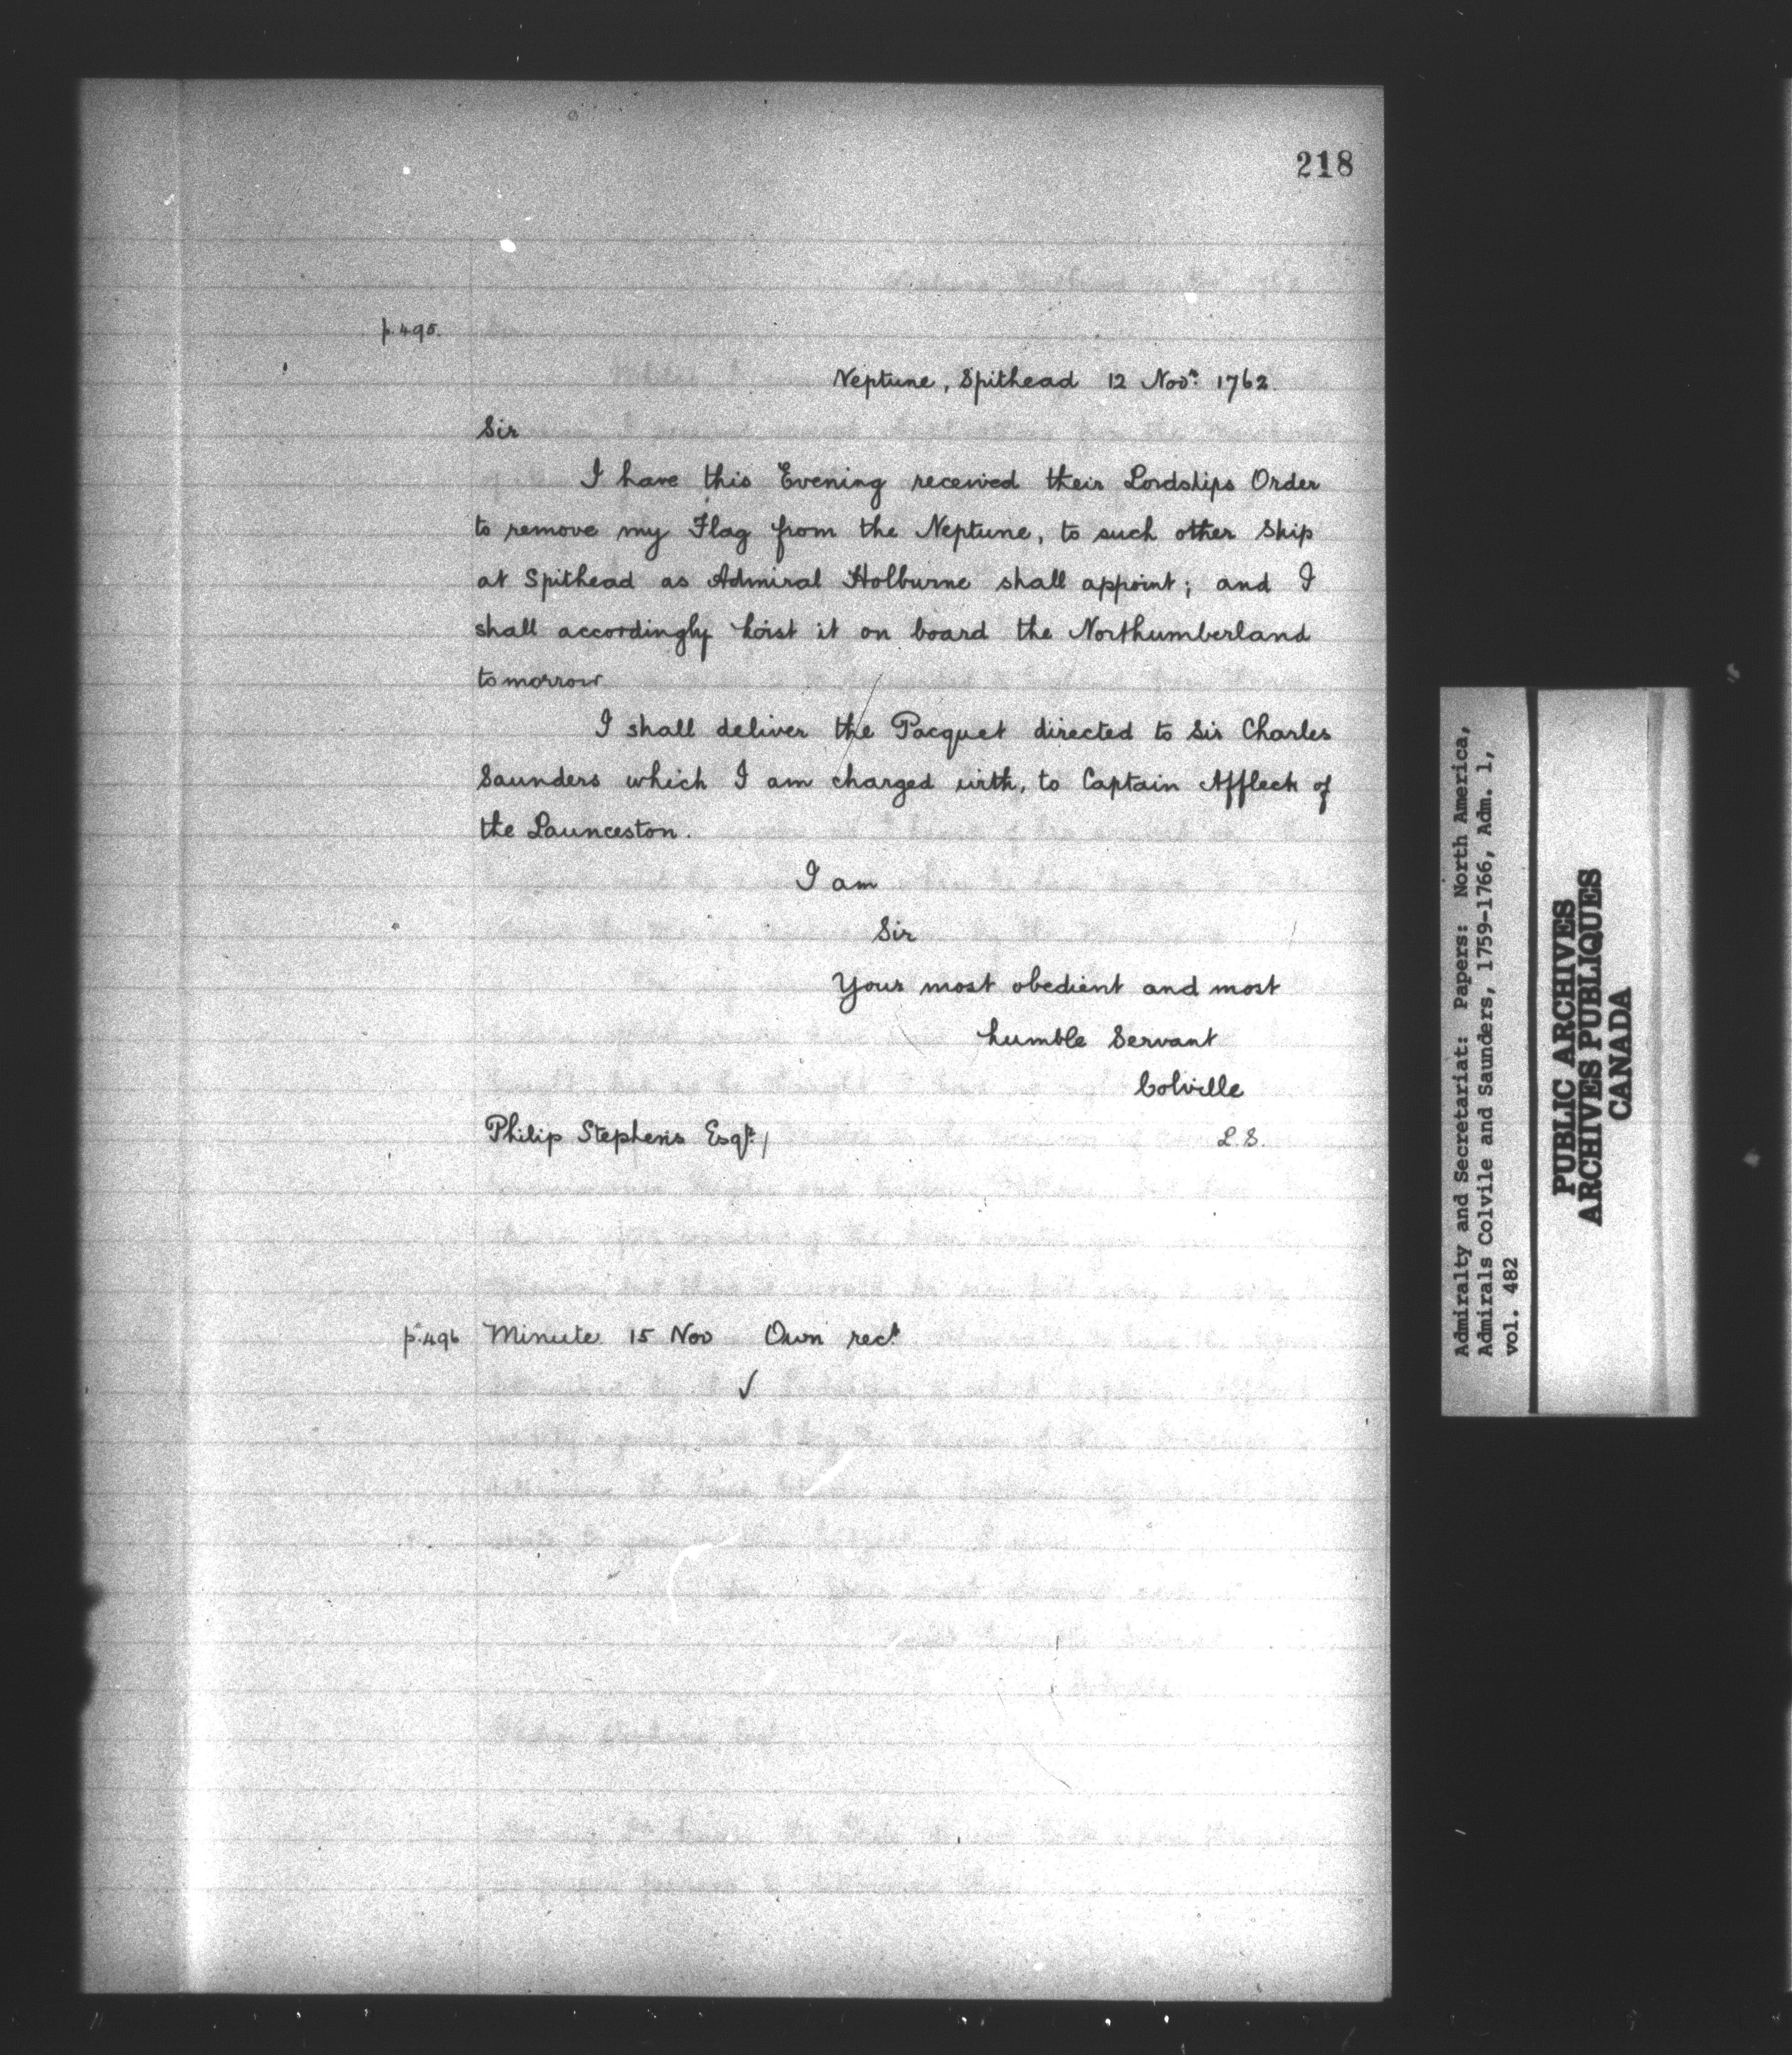 218
p.495.
Neptune, Spithead 12 Novr. 1762.
Sir
I have this Evening received their Lordships Order
to remove my Flag from the Neptune, to such other Ship
at Spithead as Admiral Holburne shall appoint; and I
shall accordingly hoist it on board the Northumberland
tomorrow
I shall deliver the Pacquet directed to Sir Charles
Saunders which I am charged with, to Captain Affleck of
the Launceston.
I am
Sir
Your most obedient and most
humble Servant
Colville
Philip Stephens Esqr. /
L.S.
p.496 Minute 15 Nov Own rect.
✓
Admiralty and Secretariat: Papers: North America,
Admirals Colvile and Saunders, 1759-1766, Adm. 1,
vol. 482
PUBLIC ARCHIVES
ARCHIVES PUBLIQUES
CANADA